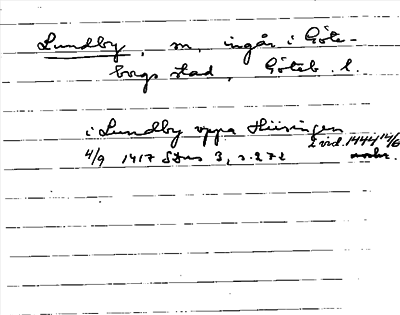 Lundby, m, ingår i Göte-
borgs stad, Göteb. l.
i Lundby vppa Hisingen
i vid. 1444 14/6
4/9 1417 SDns 3, s. 272